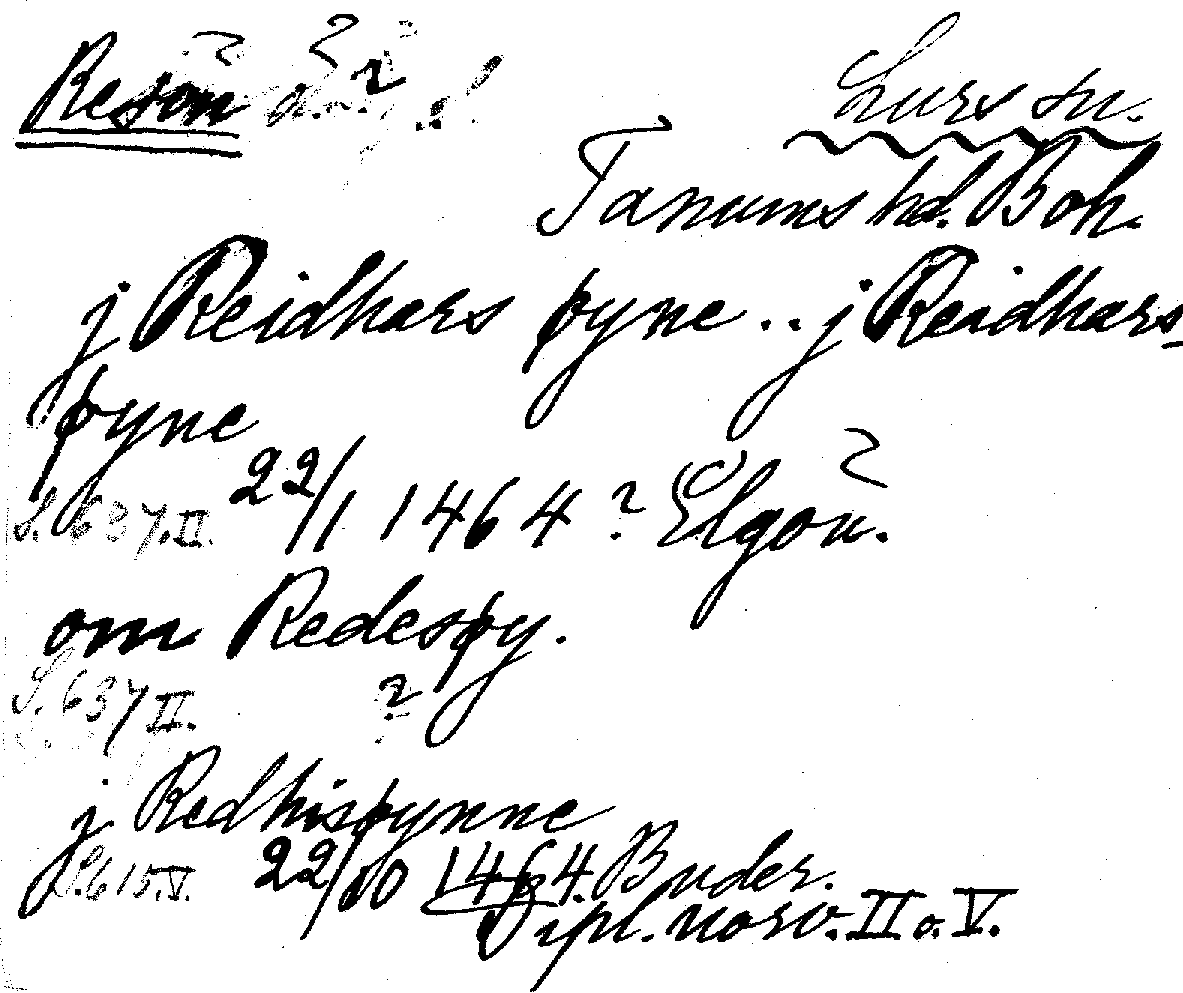 Resön
Lurs sn.
Tanums hd. Boh.
j Reidhars þyne .. j Reidhars-
þyne
S. 637. II. 22/1 1464 ? Elgön.
om Redesþy.
S. 637 II. ?
j Redhisþynne
S. 615. V. 22/10 1464. Buder.
Dipl. norv. II o. V.